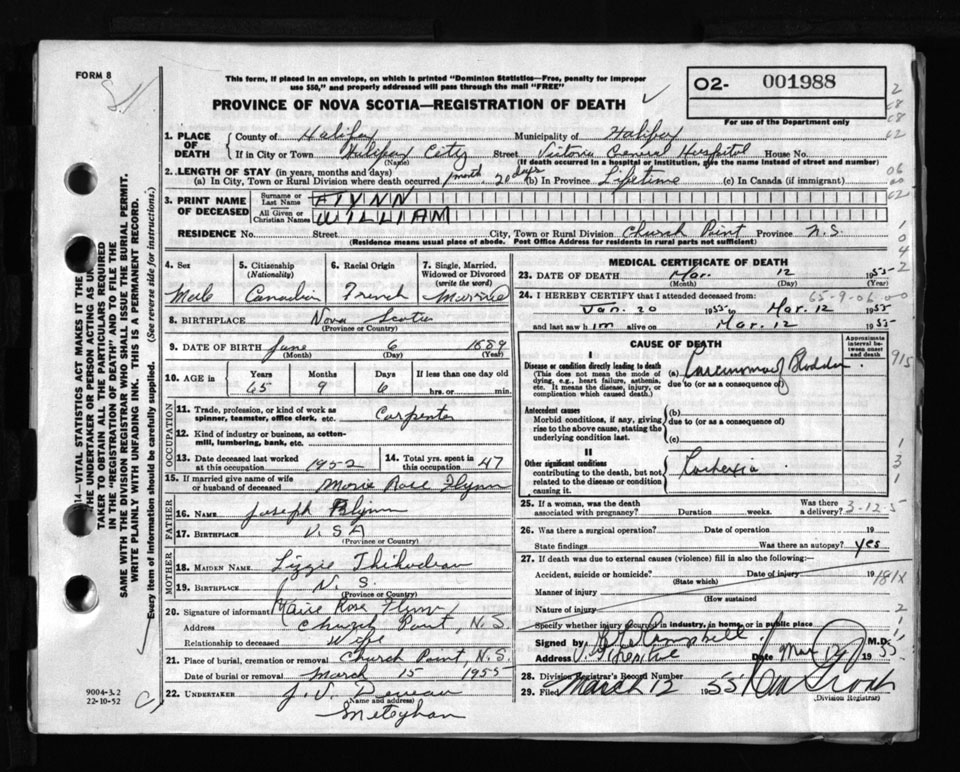 FORM 8
This form, if placed in an envelope, on which is printed "Dominion Statistics—Free, penalty for improper
use $50," and properly addressed will pass through the mail "FREE"
PROVINCE OF NOVA SCOTIA—REGISTRATION OF DEATH
02- 001988
For use of the Department only
14—VITAL STATISTICS ACT MAKES IT THE
THE UNDERTAKER OR PERSON ACTING AS UN
TAKER TO OBTAIN ALL THE PARTICULARS REQUIRED
IN THE "REGISTRATION OF DEATH" AND TO FILE THE
SAME WITH THE DIVISION REGISTRAR WHO SHALL ISSUE THE BURIAL PERMIT.
WRITE PLAINLY WITH UNFADING INK. THIS IS A PERMANENT RECORD.
Every item of information should be carefully supplied. (See reverse side for instructions.)
1. PLACE OF DEATH
County of Halifax Municipality of Halifax
If in City or Town Halifax City Street Victoria General Hospital House No.
(Name) (If death occurred in a hospital or institution, give the name instead of street and number)
2. LENGTH OF STAY (in years, months and days)
(a) In City, Town or Rural Division where death occurred 1 month, 20 days (b) In Province Lifetime (c) In Canada (if immigrant)
3. PRINT NAME OF DECEASED
Surname or Last Name FLYNN
All Given or Christian Names WILLIAM
RESIDENCE No. Street City, Town or Rural Division Church Point Province N.S.
(Residence means usual place of abode. Post Office Address for residents in rural parts not sufficient)
4. Sex Male
5. Citizenship (Nationality) Canadian
6. Racial Origin French
7. Single, Married, Widowed or Divorced (write the word) Married
8. BIRTHPLACE Nova Scotia
(Province or Country)
9. DATE OF BIRTH June 6 1889
(Month) (Day) (Year)
10. AGE in Years Months Days If less than one day old
65 9 6 hrs. or min.
OCCUPATION
11. Trade, profession, or kind of work as spinner, teamster, office clerk, etc. Carpenter
12. Kind of industry or business, as cotton-mill, lumbering, bank, etc.
13. Date deceased last worked at this occupation 1952
14. Total yrs. spent in this occupation 47
15. If married give name of wife or husband of deceased Marie Rose Flynn
FATHER
16. NAME Joseph Flynn
17. BIRTHPLACE U.S.A
(Province or Country)
MOTHER
18. MAIDEN NAME Lizzie Thibodeau
19. BIRTHPLACE N. S.
(Province or Country)
20. Signature of informant Marie Rose Flynn
Address Church Point, N.S.
Relationship to deceased Wife
21. Place of burial, cremation or removal Church Point, N.S.
Date of burial or removal March 15 1955
22. UNDERTAKER J. V. Deveau
(Name and address)
Meteghan
9004-3.2
22-10-52
MEDICAL CERTIFICATE OF DEATH
23. DATE OF DEATH Mar. 12 1955
(Month) (Day) (Year)
24. I HEREBY CERTIFY that I attended deceased from:
65-9-06-00
Jan. 20 1955 to Mar. 12 1955
and last saw him alive on Mar. 12 1955
CAUSE OF DEATH
Approximate interval between onset and death
I
Disease or condition directly leading to death
(This does not mean the mode of dying, e.g., heart failure, asthenia, etc. It means the disease, injury, or complication which caused death.)
(a) Carcinoma of Bladder
due to (or as a consequence of)
Antecedent causes
Morbid conditions, if any, giving rise to the above cause, stating the underlying condition last.
(b)
due to (or as a consequence of)
(c)
II
Other significant conditions
contributing to the death, but not related to the disease or condition causing it.
Cachexia
25. If a woman, was the death associated with pregnancy? Duration weeks. Was there a delivery?
3-12-5
26. Was there a surgical operation? Date of operation 19
State findings Was there an autopsy? yes
27. If death was due to external causes (violence) fill in also the following:
Accident, suicide or homicide? Date of injury 19
(State which)
181X
Manner of injury
(How sustained
Nature of injury
Specify whether injury occurred in industry, in home, or in public place
Signed by Campbell M.D.
Address Date Mar 12 1955
28. Division Registrar's Record Number
29. Filed March 12 1955
(Division Registrar)